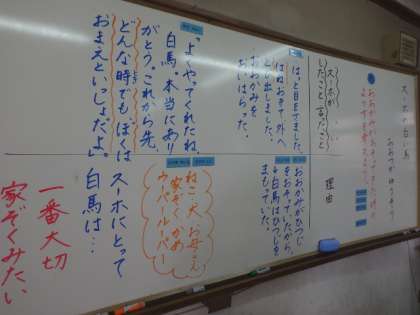 スーホの白い馬
おおつか ゆうぞう
スーホが
したこと 言ったこと
理由
はっと目をさました。
はねおきて、外へ
とび出しました。
おおかみを
おいはらった。
おおかみがひつじ
をおそっていたから。
白馬はひつじを
まもっていた。
「よくやってくれたね、
白馬。本当にあり
がとう。これから先、
どんな時でも、ぼくは
おまえといっしょだよ。」
ねこ 犬 お母さん
家ぞく かめ
ウーパールーパー
スーホにとって
白馬は…
一番大切
家ぞくみたい